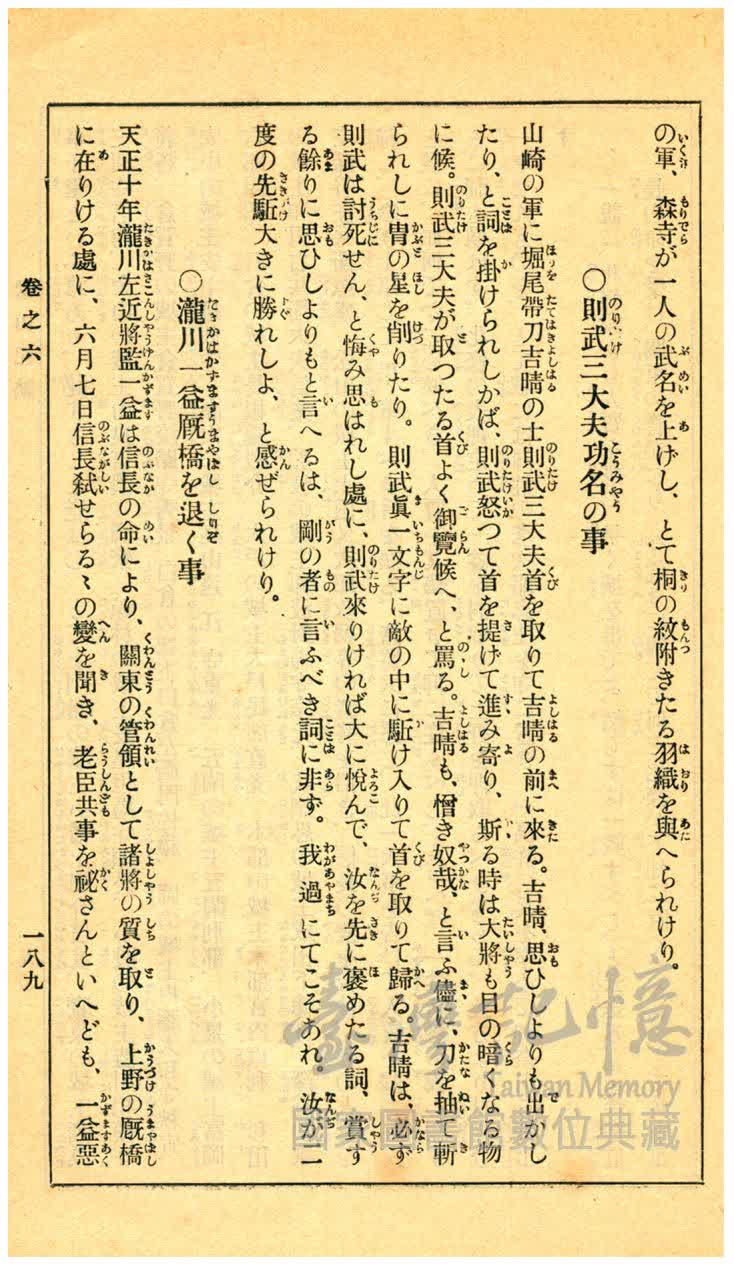 の軍、森寺が一人の武名を上げし、とて桐の紋附きたる羽織を與へられけり。
〇則武三大夫功名の事
山崎の軍に堀尾帶刀吉晴の士則武三大夫首を取りて吉晴の前に來る。吉晴、思ひしよりも出かし
たり、と詞を掛けられしかば、則武怒つて首を提げて進み寄り、斯る時は大將も目の暗くなる物
に候。則武三大夫が取つたる首よく御覽候へ、と罵る。吉晴も、憎き奴哉、と言ふ儘に、刀を抽て斬
られしに冑の星を削りたり。則武眞一文字に敵の中に駈け入りて首を取りて歸る。吉晴は、必ず
則武は討死せん、と悔み思はれし處に、則武來りければ大に悅んで、汝を先に褒めたる詞、賞す
る餘りに思ひしよりもと言へるは、剛の者に言ふべき詞に非ず。我過にてこそあれ。汝が二
度の先駈大きに勝れしよ、と感ぜられけり。
〇瀧川一益厩橋を退く事
天正十年瀧川左近將監一益は信長の命により、關東の管領として諸將の質を取り、上野の厩橋
に在りける處に、六月七日信長弑せらるゝの變を聞き、老臣共事を祕さんといへども、一益惡
卷之六
一八九
臺灣記憶
Taiwan Memory
國家圖書館數位典藏